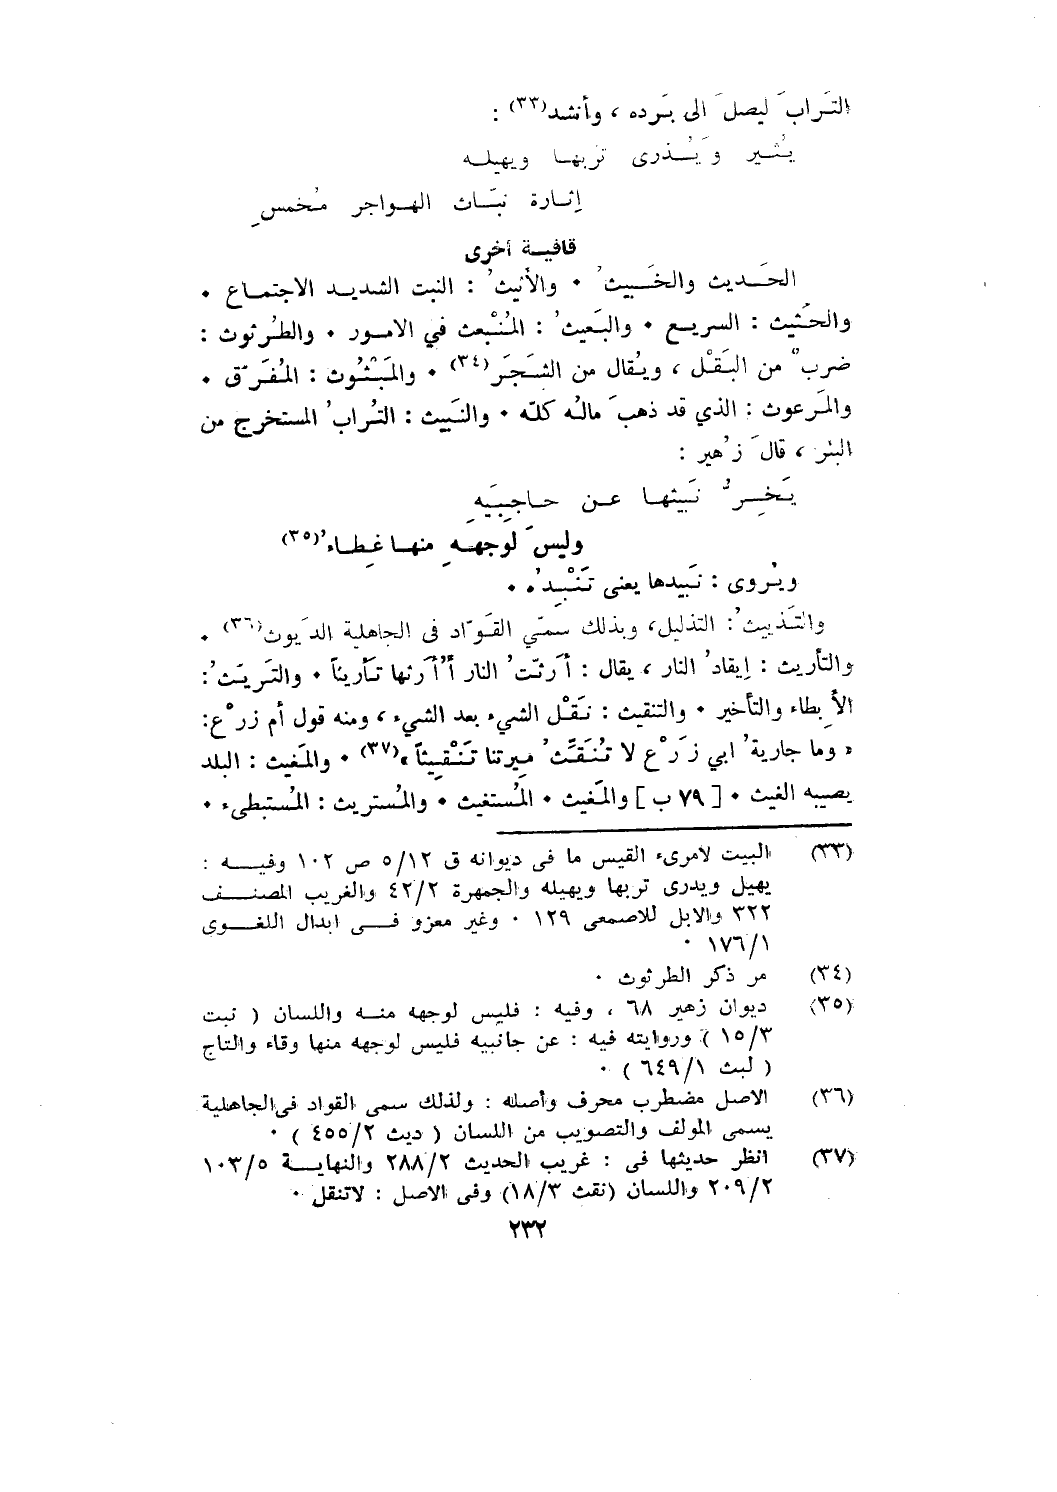 التَراب َ ليصل َ الى بَرده ، وأنشد(٣٣) :
يُثـير و يَـُـذرى تربهـا ويهيلـه
إثـارة نبّـاث الهـواجر مُخمسِ
قافيـة أخرى
الحَـديث والخَـبيث ُ ٠ والأَثيث ُ : النبت الشديـد الاجتمـاع ٠
والحَثيث : السريـع ٠ والبَعيث ُ : المُنْبعث في الامـور ٠ والطُرثوث :
ضرب ٌ من البَقْل ، ويُقال من الشَجَر(٣٤) ٠ والمَبْثُوث : المُفَرّق ٠
والمَرعوث : الذي قد ذهب َ مالُه كلّه ٠ والنَبيث : التُراب ُ المستخرج من
البئر ، قال َ ز ُهير :
يَـخِـر ُّ نَبيثهـا عـن حـاجِبيَـهِ
وليس َ لوجهـهِ منهـا غِطـاء ُ(٣٥)
ويُروى : نَبيدها يعنى تَنْبِـد ُ ٠ ٠
والتَـذييث ُ : التذليل، وبذلك سمّي القَوّاد فى الجاهلية الدَيوث(٣٦) ٠
والتأريث : إيقاد ُ النار ، يقال : أَرثت ُ النار أُأَرثها تأريثاً ٠ والتَريّث ُ :
الأ ِبطاء والتأخير ٠ والتنقيث : نَقْل الشيء بعد الشيء ، ومنه قول أم زر ْع :
« وما جارية ُ ابي زَر ْع لا تُنَقِّث ُ مِيرتنا تَنْقِيثاً »(٣٧) ٠ والمَغيث : البلد
يصيبه الغيث ٠ [ ٧٩ ب ] والمَغيث ٠ المُستغيث ٠ والمُستريث : المُستبطىء ٠
(٣٣) البيت لامرىء القيس ما فى ديوانه ق ٥/١٢ ص ١٠٢ وفيـه :
يهيل ويدرى تربها ويهيله والجمهرة ٤٢/٢ والغريب المصنـف
٣٢٢ والابل للاصمعى ١٢٩ ٠ وغير معزو فـى ابدال اللغـوى
١٧٦/١ ٠
(٣٤) مر ذكر الطرثوث ٠
(٣٥) ديوان زهير ٦٨ ، وفيه : فليس لوجهه منـه واللسان ( نبث
١٥/٣ ) وروايته فيه : عن جانبيه فليس لوجهه منها وقاء والتاج
( لبث ٦٤٩/١ ) ٠
(٣٦) الاصل مضطرب محرف وأصله : ولذلك سمى القواد فى الجاهلية
يسمى المولف والتصويب من اللسان ( ديث ٤٥٥/٢ ) ٠
(٣٧) انظر حديثها فى : غريب الحديث ٢٨٨/٢ والنهايـة ١٠٣/٥
٢٠٩/٢ واللسان (نقث ١٨/٣) وفى الاصل : لاتنقل ٠
٢٣٢